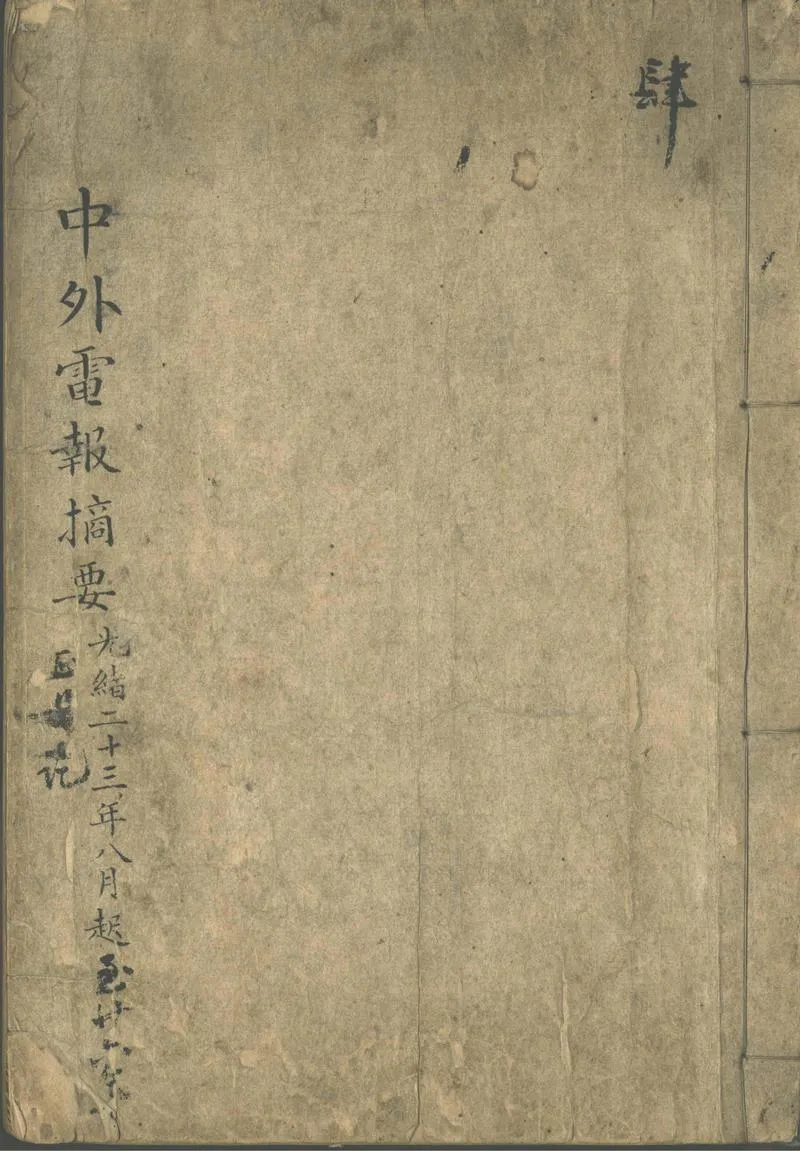 肆
中外電報摘要
光緒二十三年八月起至廿六年
正月訖